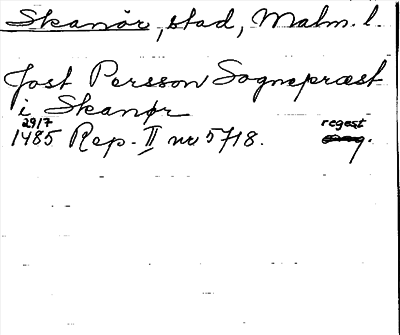 Skanör, stad, Malm. l.
Jost Persson Sognepræst
i Skanør
29/7
1485 Rep. II nr 5718. regest